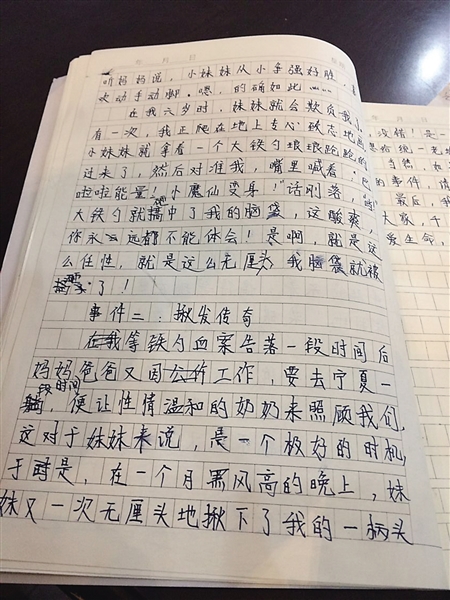 听妈妈说，小妹妹从小争强好胜，喜
欢动手动脚。嗯，的确如此……
在我六岁时，妹妹就会欺负我
有一次，我正爬在地上专心致志地画
小妹妹就拿着一个大铁勺踉踉跑跑的
过来了，然后对准我，嘴里喊着：巴
啦啦能量！小魔仙变身！"话刚落，
大铁勺就中了我的脑袋，这酸爽，
你永远都不能体会！是啊，就是这
么任性，就是这么无厘头，我脑袋就被
了！
事件二：揪发传奇
在我等铁勺血案告落一段时间后
妈妈爸爸又因公的工作，要去宁夏一
段时间，便让性情温和的奶奶来照顾我们，
这对于妹妹来说，是一个极好的时机，
于是，在一个月黑风高的晚上，妹
妹又一次无厘头地揪下了我的一柄头
没错！是一
当然，如
的事件，请
最后，我
大家，千
爱生命，